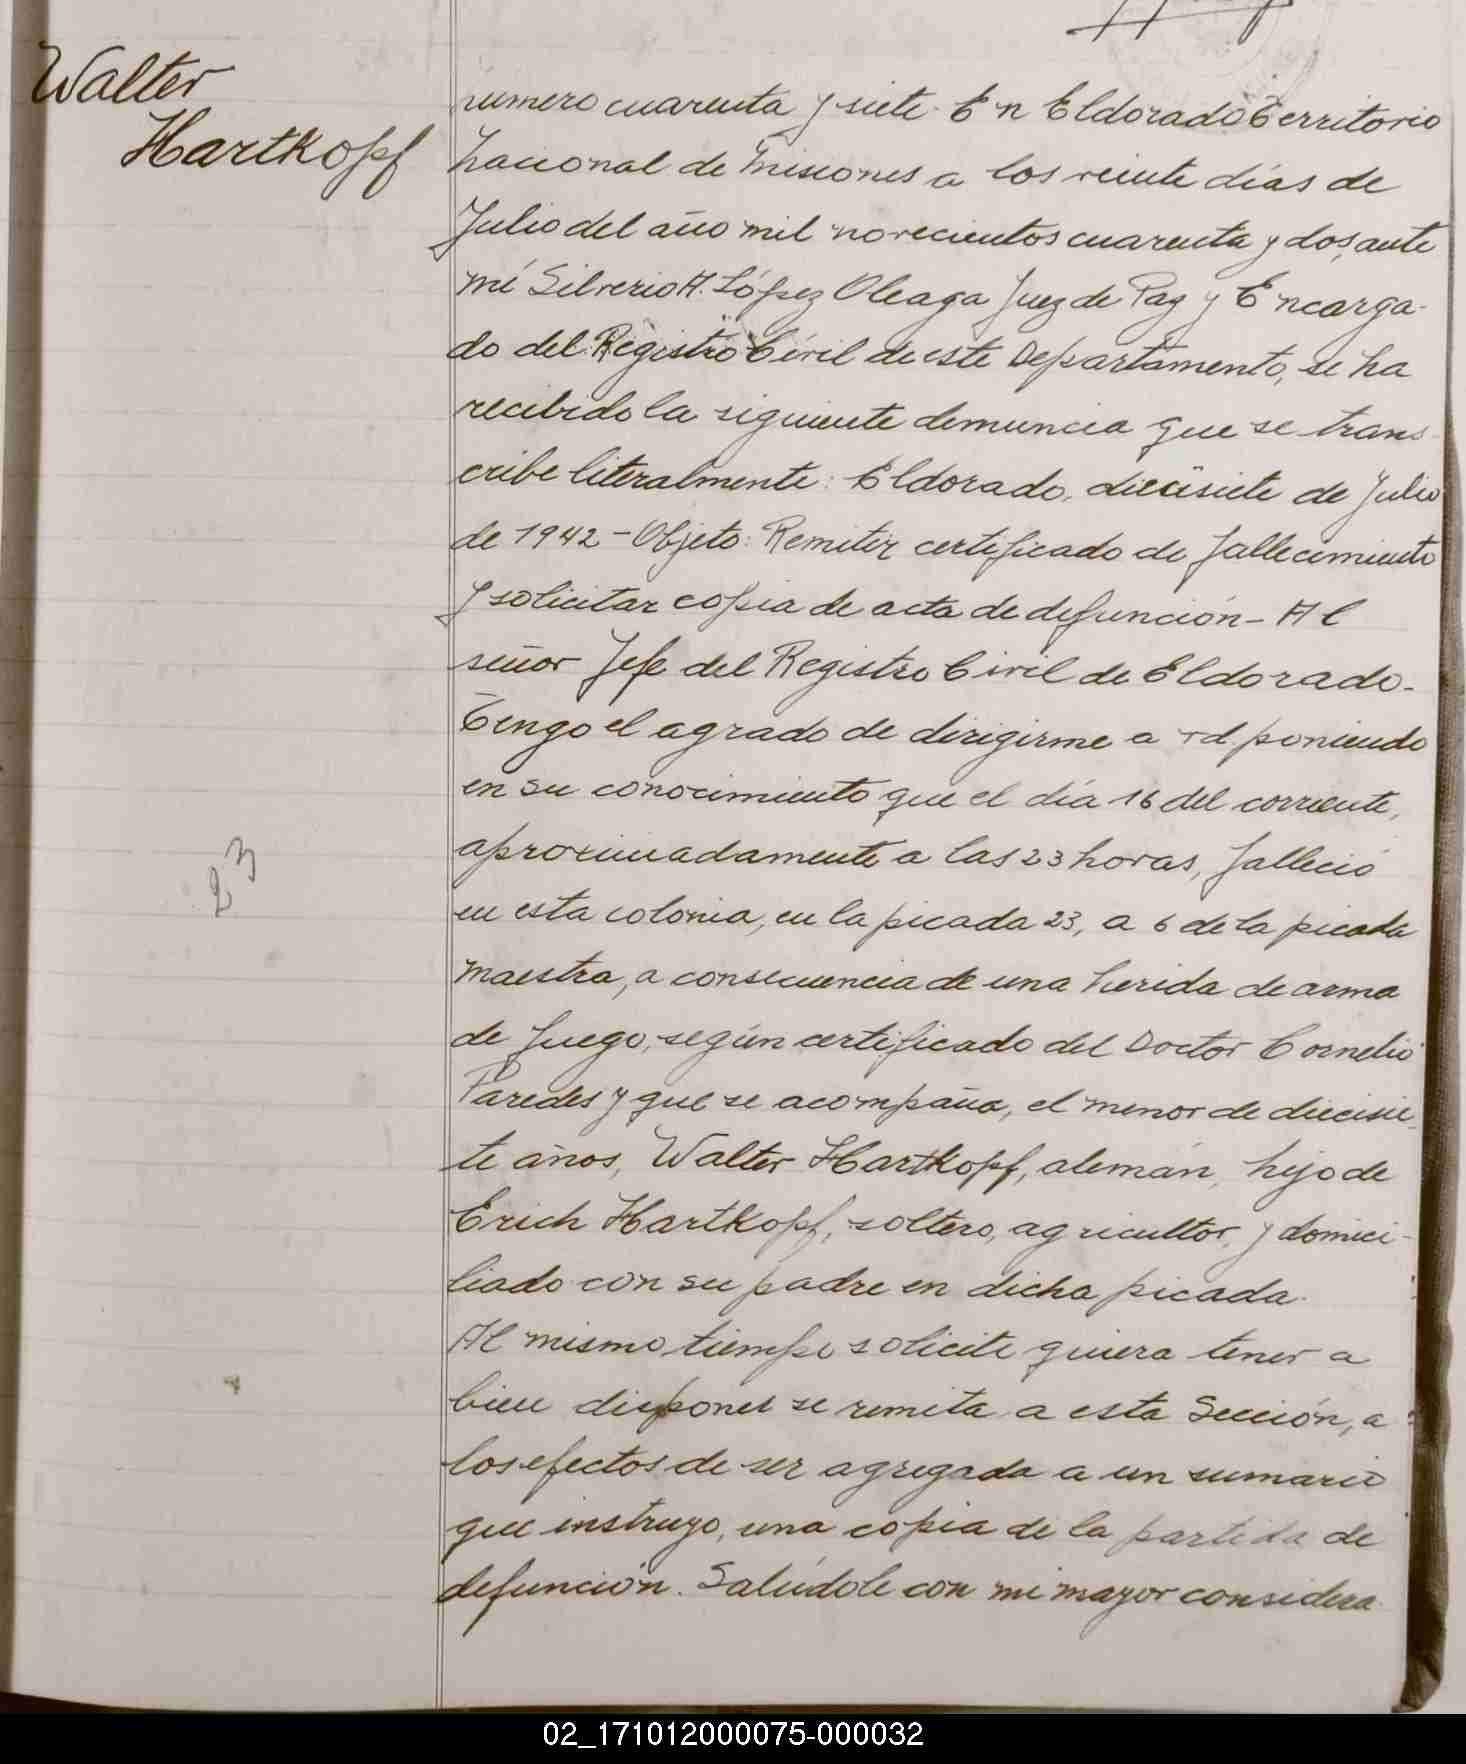 Walter
Hartkopf
numero cuarenta y siete. En Eldorado Territorio
Nacional de Misiones a los veinte días de
Julio del año mil novecientos cuarenta y dos, ante
mí Silverio A. López Oleaga Juez de Paz y Encarga-
do del Registro Civil de este Departamento, se ha
recibido la siguiente denuncia que se trans-
cribe literalmente: Eldorado, diecisiete de Julio
de 1942 - Objeto: Remitir certificado de fallecimiento
y solicitar copia de acta de defunción - Al
señor Jefe del Registro Civil de Eldorado.-
Tengo el agrado de dirigirme a vd. poniendo
en su conocimiento que el día 16 del corriente,
aproximadamente a las 23 horas, falleció
en esta colonia, en la picada 23, a 6 de la picada
maestra, a consecuencia de una herida de arma
de fuego, según certificado del Doctor Cornelio
Paredes y que se acompaña, el menor de diecisie-
te años, Walter Hartkopf, alemán, hijo de
Erich Hartkopf, soltero, agricultor, y domici-
liado con su padre en dicha picada.
Al mismo tiempo solicite quiera tener a
bien disponer se remita a esta Sección, a
los efectos de ser agregada a un sumario
que instruyo, una copia de la partida de
defunción. Salúdole con mi mayor considera-
23
02_171012000075-000032